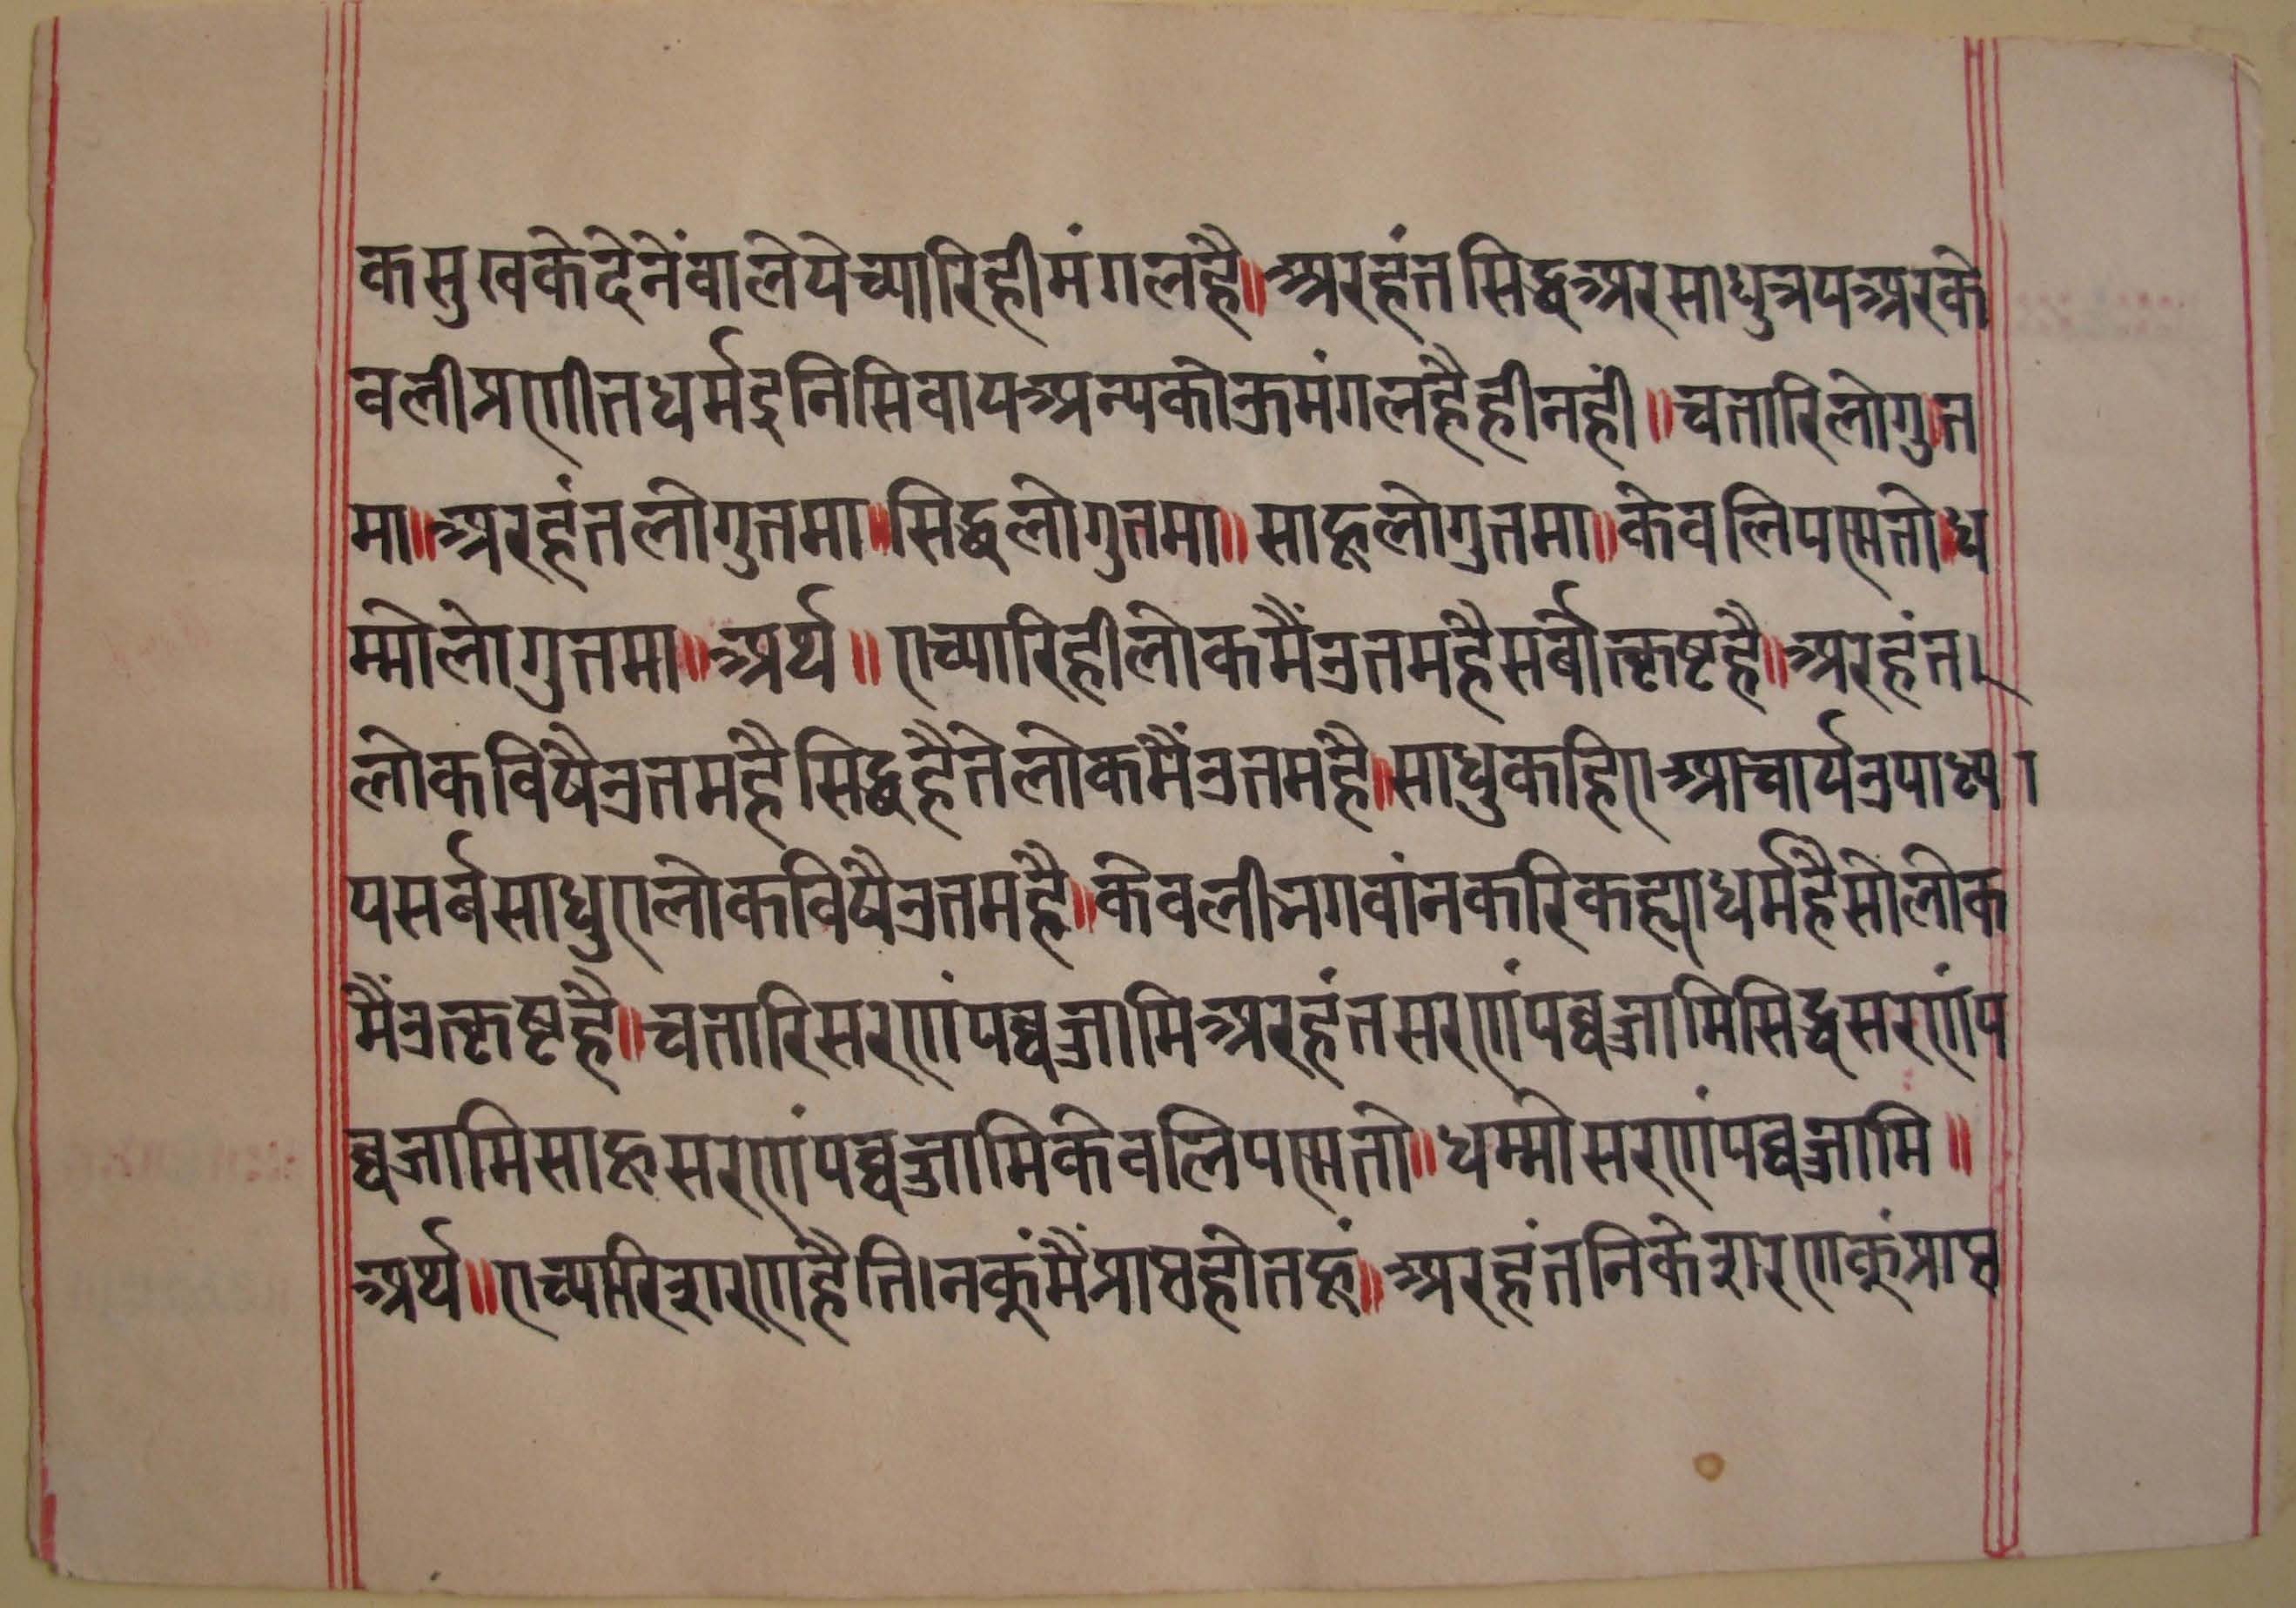 कसुखकेदेनेंवालेयेच्यारिहीमंगलहै॥अरहंतसिद्धअरसाधुत्रयअरके
वलीप्रणीतधर्मइनिसिवायअन्यकोऊमंगलहैहीनहीं॥चतारिलोगुत
मा॥अरहंतलोगुतमा॥सिद्धलोगुतमा॥साहूलोगुतमा॥केवलिपणत्तोध
म्मोलोगुतमा॥अर्थ॥एच्यारिहीलोकमैंउतमहैसर्बोत्कृष्टहै॥अरहंत।
लोकविषैउतमहैसिद्धहैतेलोकमैंउतमहै॥साधुकहिएआचार्यउपाध्या
यसर्बसाधुएलोकविषैउतमहै॥केवलीभगवांनकरिकह्याधर्महैसोलोक
मैंउत्कृष्टहै॥चतारिसरणंपव्वज्जामिअरहंतसरणंपव्वज्जामिसिद्धसरणंप
व्वज्जामिसाहूसरणंपव्वज्जामिकेवलिपणत्तो॥धम्मोसरणंपव्वज्जामि॥
अर्थ॥एच्यारिशरणहैति।नकुंमैंप्राप्तहोतहूं॥अरहंतनिकेशरणकुंप्राप्त